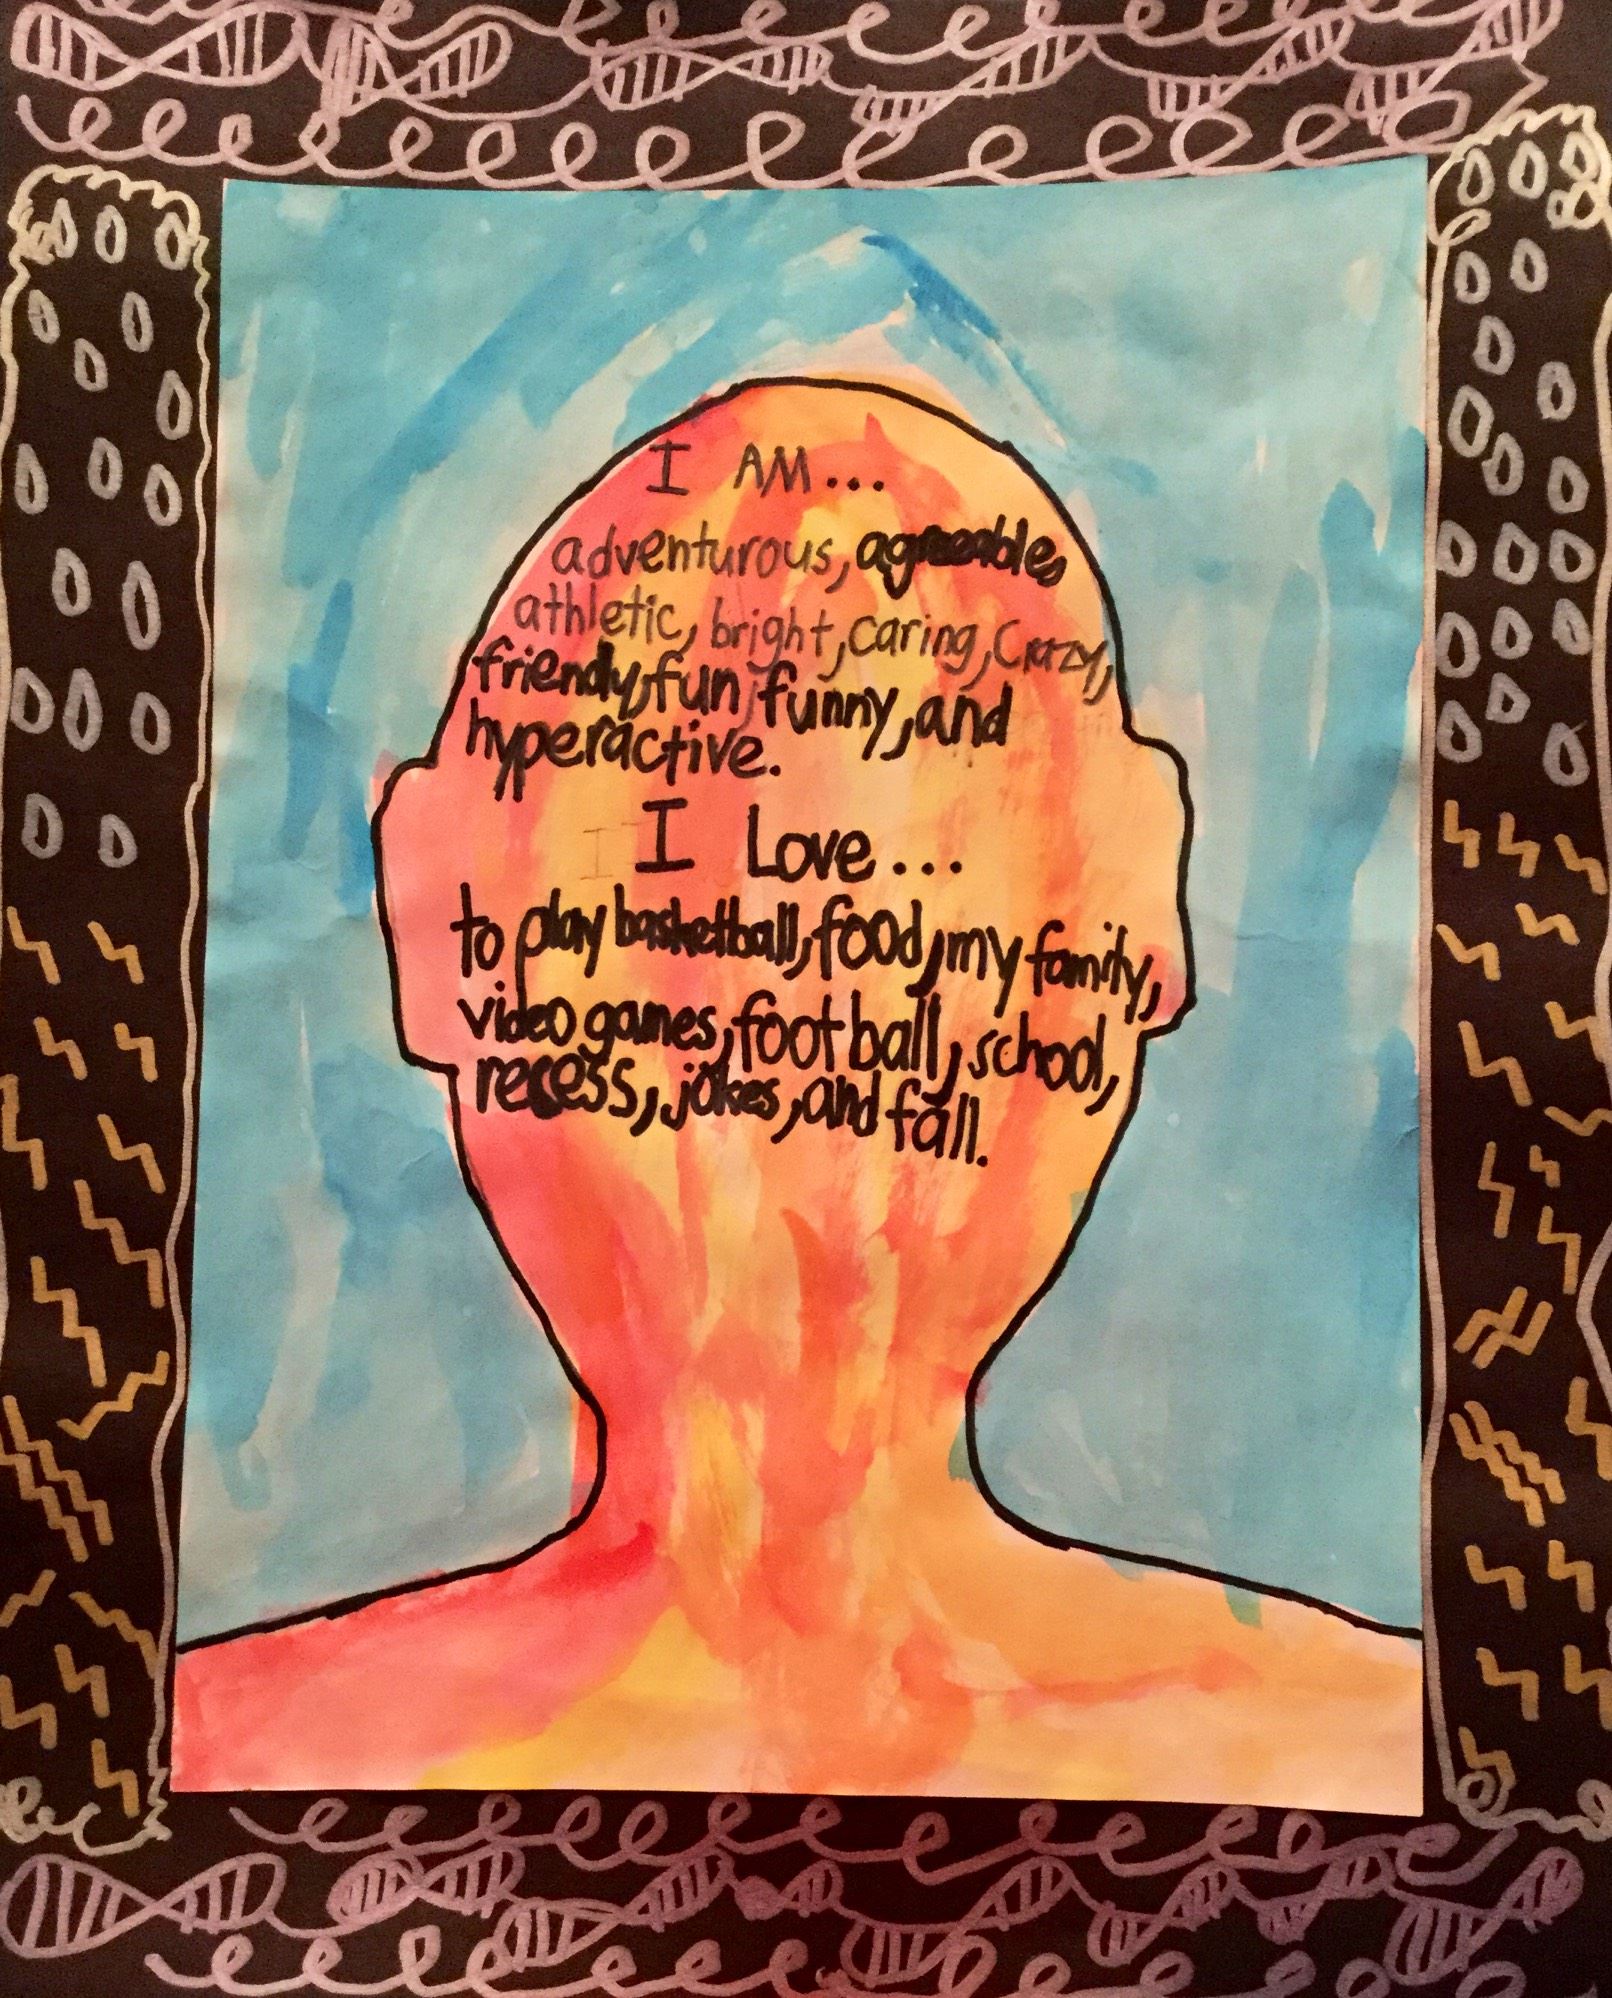 I AM...
adventurous, agreeable,
athletic, bright, caring, Crazy,
friendly, fun, funny, and
hyperactive.
I Love...
to play basketball, food, my family,
video games, football, school,
recess, jokes, and fall.